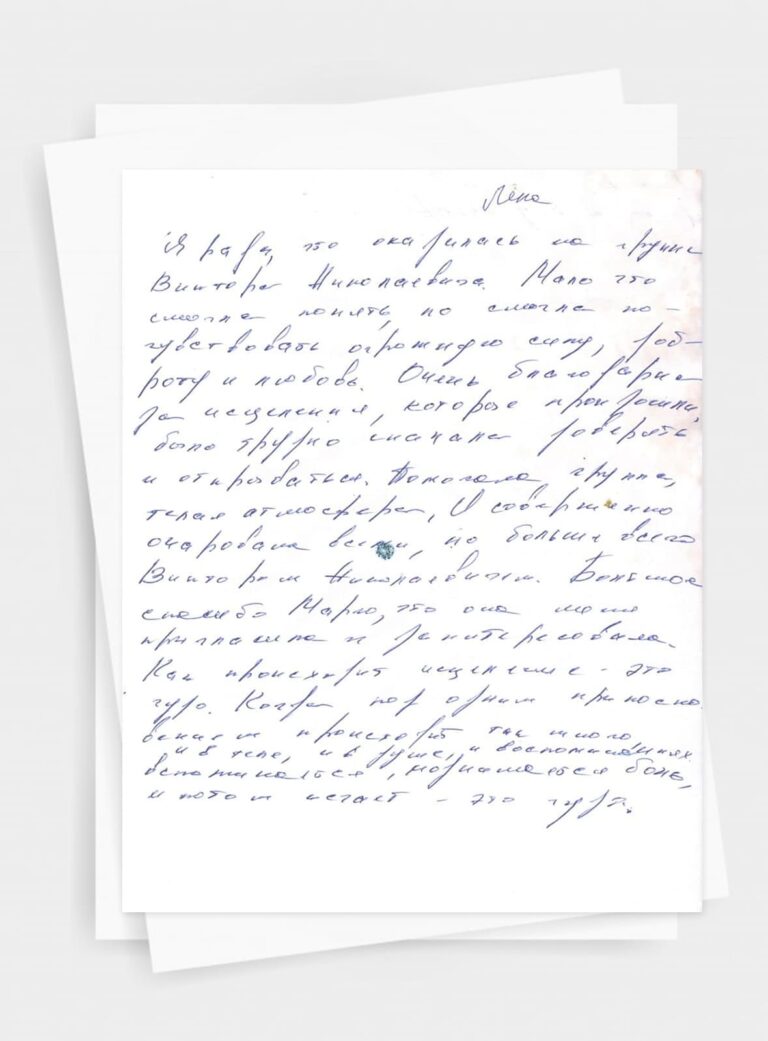 Лена
Я рада, что оказалась на группе
Виктора Николаевича. Мало что
смогла понять, но смогла по-
чувствовать огромную силу, доб-
роту и любовь. Очень благодарна
за исцеления, которые произошли,
было трудно сначала доверять
и открываться. Помогала группа,
теплая атмосфера, И совершенно
очарована всеми, но больше всего
Виктором Николаевичем. Большое
спасибо Марго, что она меня
пригласила и заинтересовала.
Как происходит исцеление - это
чудо. Когда под одним прикосно
вением происходит так много
и в теле, и в душе, и воспоминаниях
вспоминается, поднимается боль,
и потом исчает - это чудо.